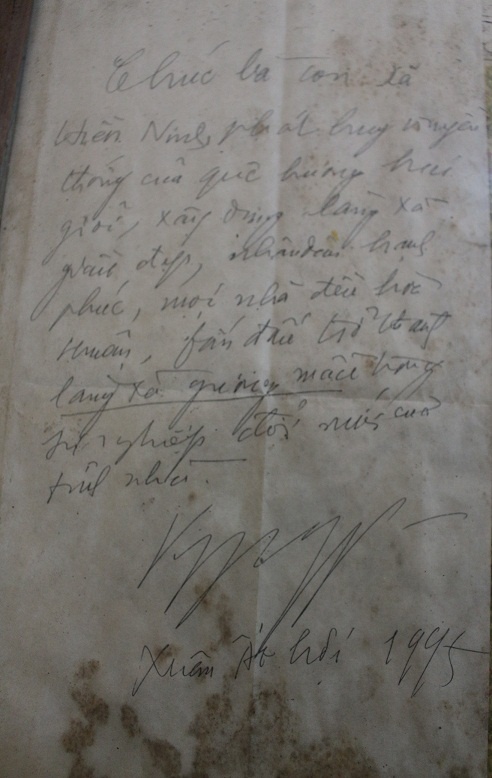 Chúc bà con xã
Hiền Ninh, phát huy truyền
thống của quê hương hai
giỏi, xây dựng làng xã
giàu đẹp, nhân dân hạnh
phúc, mọi nhà đều hòa
thuận, fấn đấu trở thành
làng xã gương mẫu trong
sự nghiệp đổi mới của
tỉnh nhà.
Xuân Ất Hợi 1995